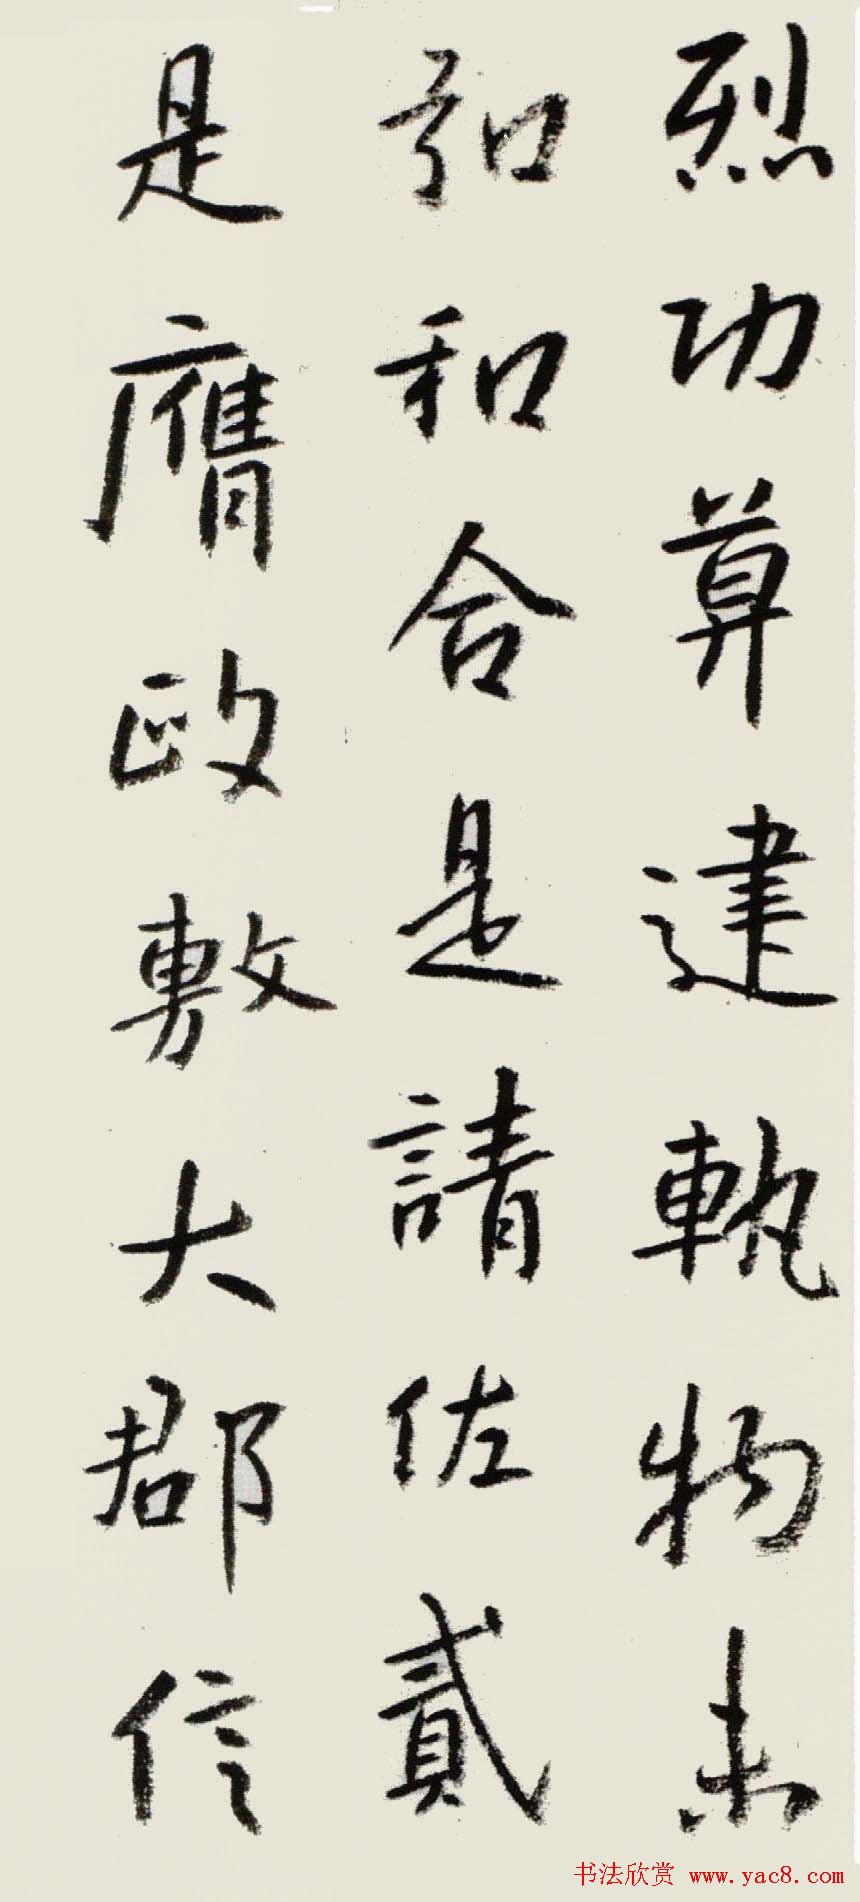 烈功算建軌物未
弘和合是請佐貳
是膺政敷大郡信
书法欣赏 www.yac8.com